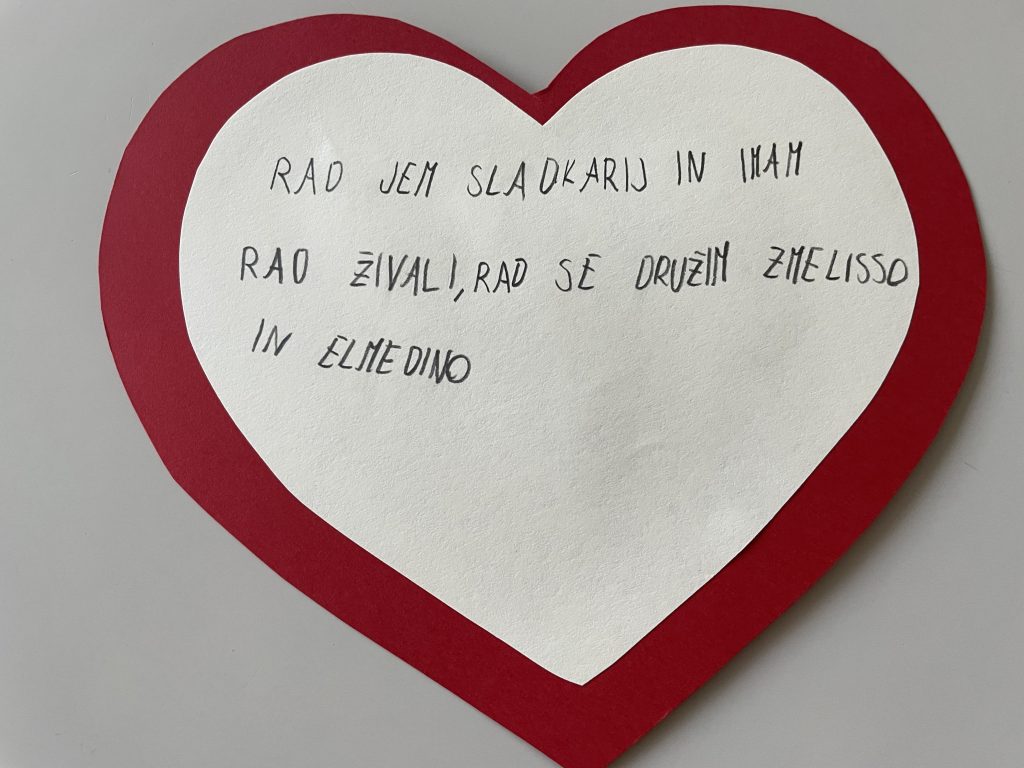 RAD JEM SLADKARIJ IN IMAM
RAD ŽIVALI, RAD SE DRUŽIM ZMELISSO
IN ELMEDINO